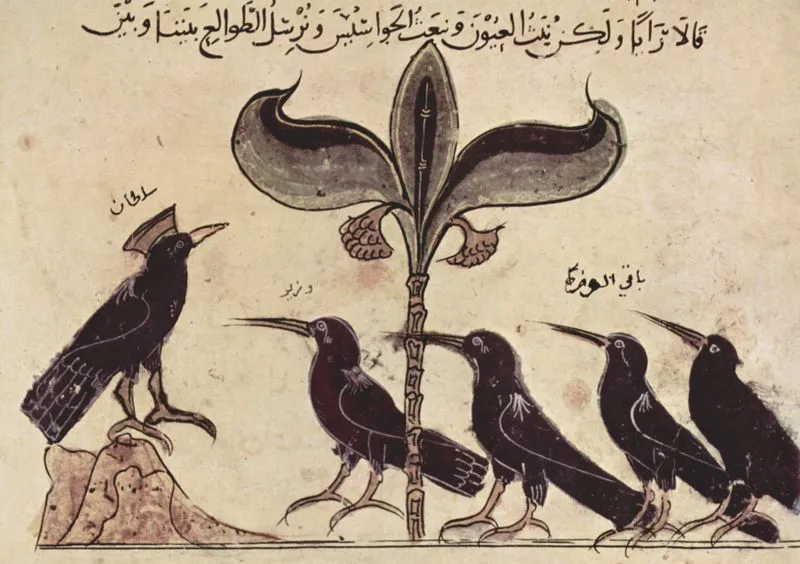 قالا رَايًا وَلكِن نَبُثُّ العُيُوْنَ وَنبعَثُ الجَواسِيْسَ وَنُرْسِلُ الطَّوالِعَ بيننا وَبَيْنَ
سلطان
وزير
باقي الوزرا